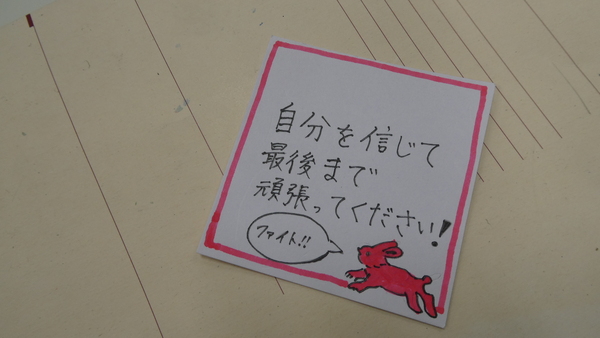 自分を信じて
最後まで
頑張ってください!
ファイト!!